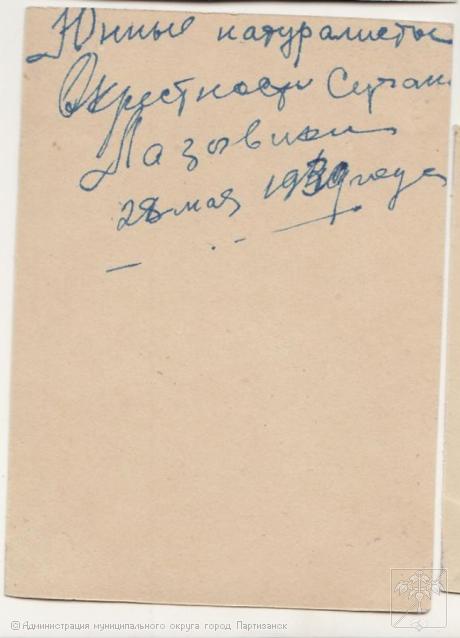 Юнные натуралисты
Окрестности Сучан
Лазовики
28 мая 1939 года
© Администрация муниципального округа город Партизанск